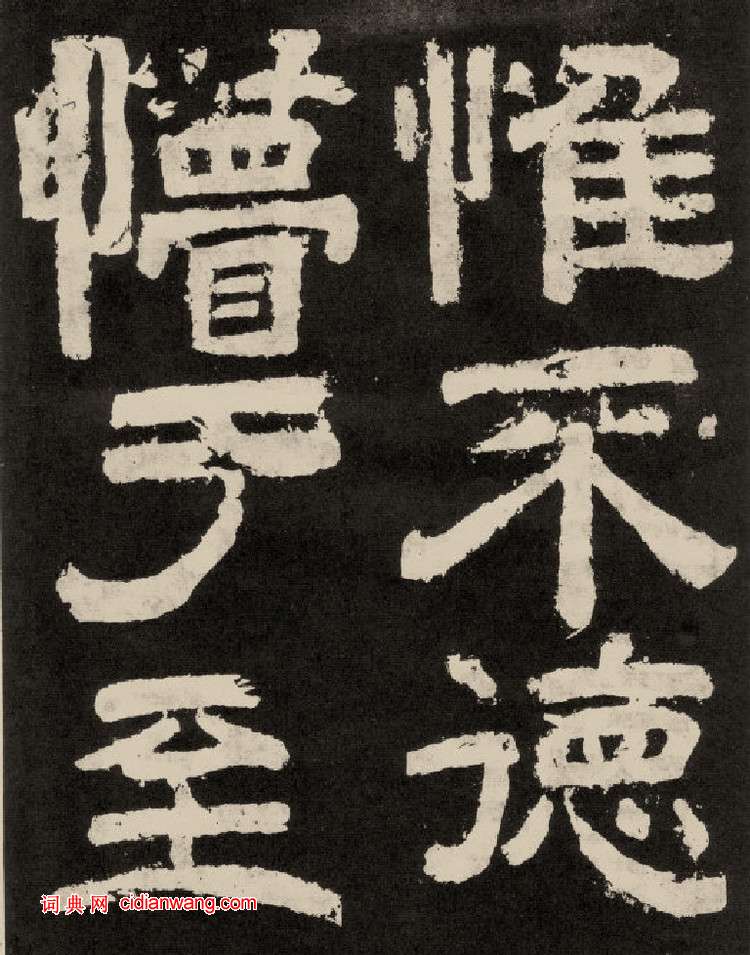 惟不德
懵于至
词典网 cidianwang.com